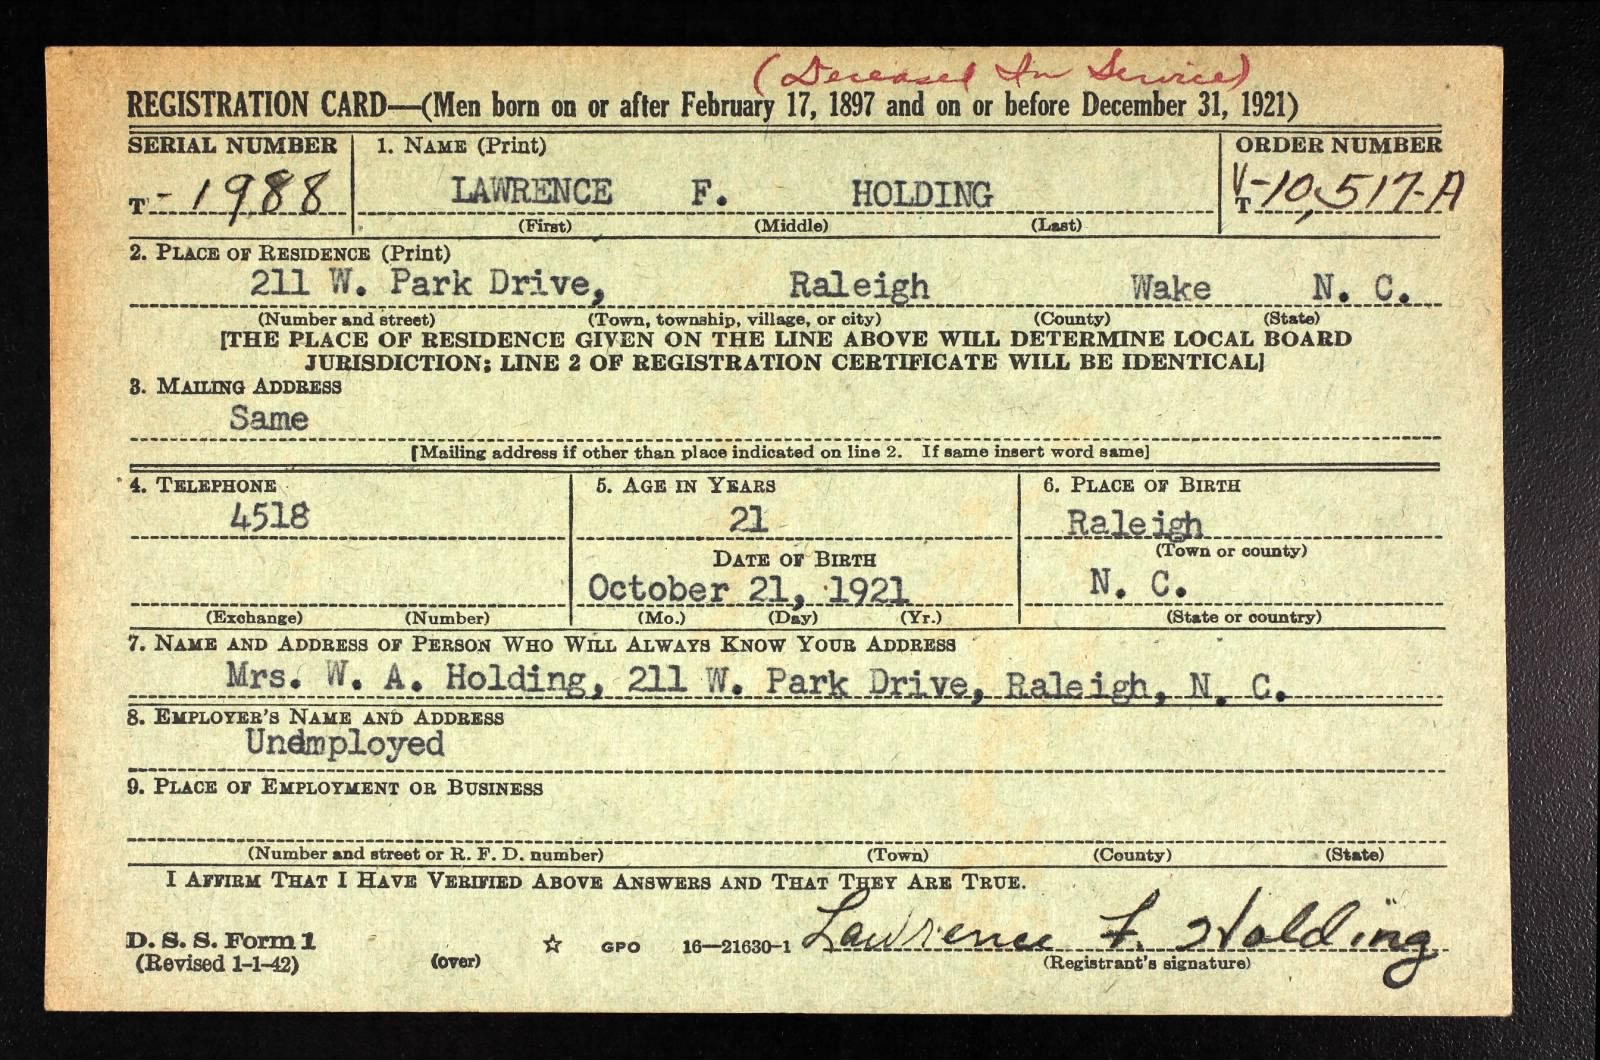 (Deceased In Service)
REGISTRATION CARD—(Men born on or after February 17, 1897 and on or before December 31, 1921)
SERIAL NUMBER 1. NAME (Print) ORDER NUMBER
T - 1988 LAWRENCE F. HOLDING V-10,517-A
T
(First) (Middle) (Last)
2. PLACE OF RESIDENCE (Print)
211 W. Park Drive, Raleigh Wake N. C.
(Number and street) (Town, township, village, or city) (County) (State)
[THE PLACE OF RESIDENCE GIVEN ON THE LINE ABOVE WILL DETERMINE LOCAL BOARD
JURISDICTION; LINE 2 OF REGISTRATION CERTIFICATE WILL BE IDENTICAL]
3. MAILING ADDRESS
Same
[Mailing address if other than place indicated on line 2. If same insert word same]
4. TELEPHONE 5. AGE IN YEARS 6. PLACE OF BIRTH
4518 21 Raleigh
(Town or county)
DATE OF BIRTH
October 21, 1921 N. C.
(Exchange) (Number) (Mo.) (Day) (Yr.) (State or country)
7. NAME AND ADDRESS OF PERSON WHO WILL ALWAYS KNOW YOUR ADDRESS
Mrs. W. A. Holding, 211 W. Park Drive, Raleigh, N. C.
8. EMPLOYER'S NAME AND ADDRESS
Unemployed
9. PLACE OF EMPLOYMENT OR BUSINESS
(Number and street or R. F. D. number) (Town) (County) (State)
I AFFIRM THAT I HAVE VERIFIED ABOVE ANSWERS AND THAT THEY ARE TRUE.
D. S. S. Form 1 ☆ GPO 16—21630-1 Lawrence F. Holding
(Revised 1-1-42) (over) (Registrant's signature)